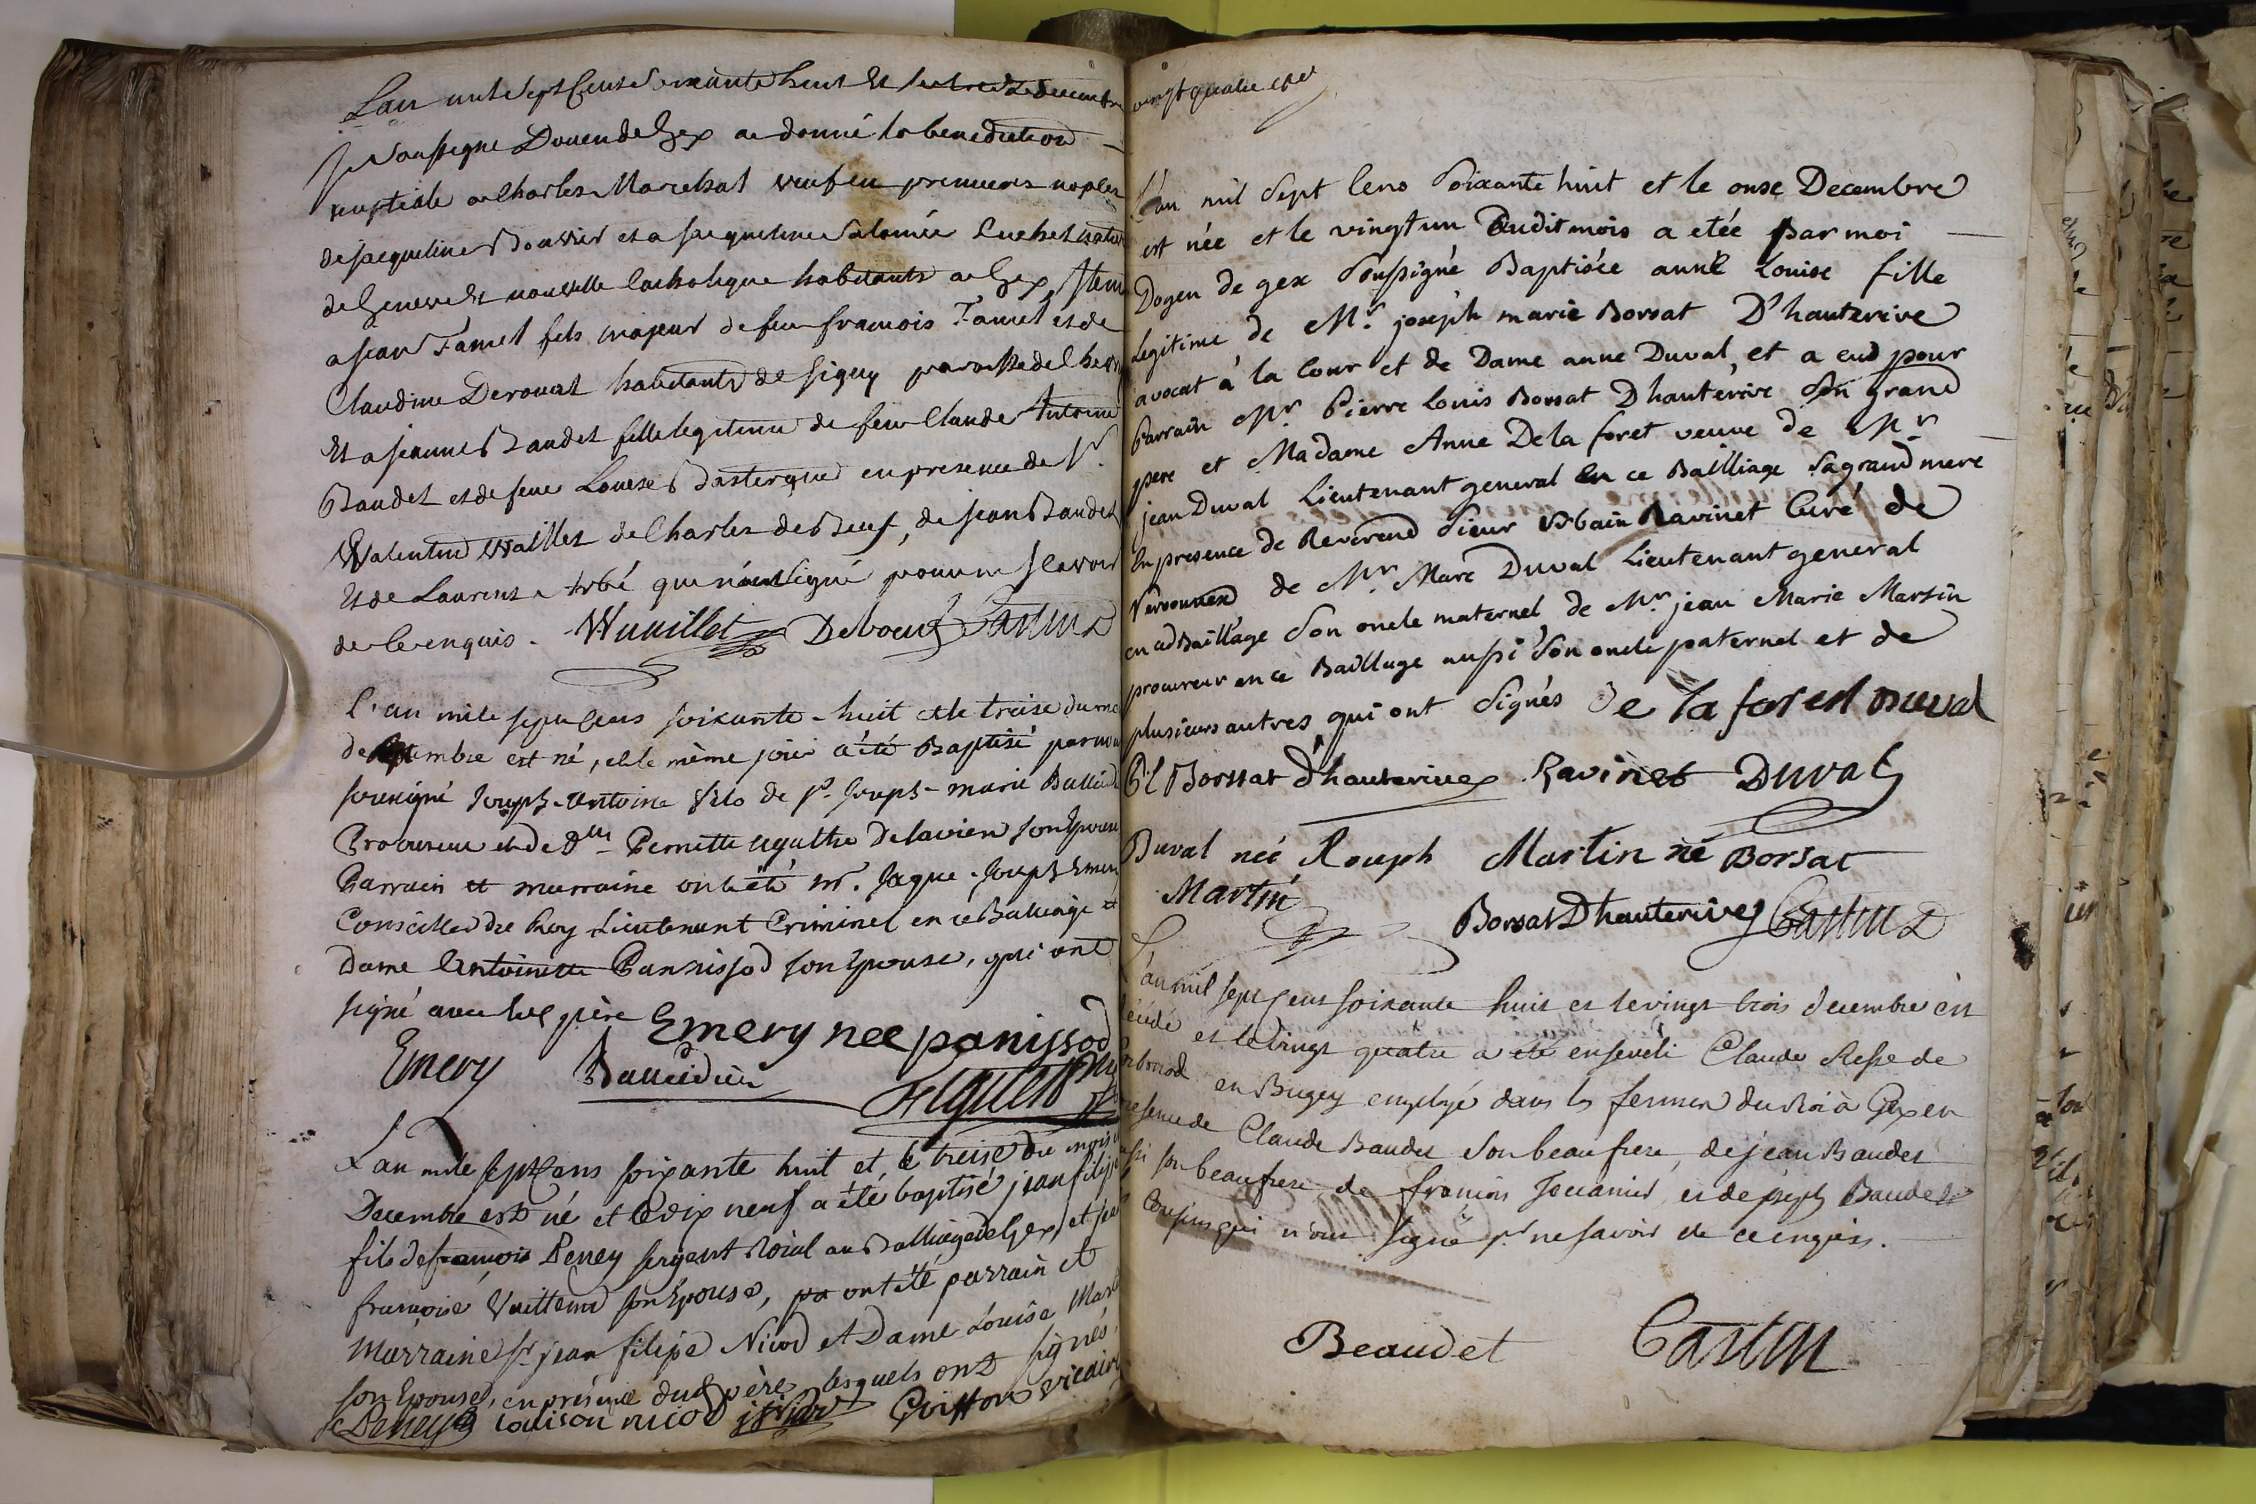 L'an mil Sept Cent Soixante huit Et le treize decembre
Je Soussigne Doyen de Gex ai donné la benediction
nuptiale a Charles Marechal veuf en premieres noples
de jacqueline Bouvier et a jacqueline Salomée Cuchet native
de Geneve Et nouvelle Catholique habitants a Gex, Item
a jean Famel fils majeur de feu francois Famel et de
Claudine Derouat habitants de Signy paroisse de
Et a jeanne Baudet fille legitime de feu Claude Antoine
Baudet et de feue Louise en presence de Sr.
Valentin Wuillet de Charles deBoeuf, de jean Baudet
Et de Laurent qui n'ont signé pour ne scavoir
de ce enquis. Wuuillet Deboeuf Castin D
L'an mile sept cens soixante-huit et le treise du me
decembre est né, et le même jour a été Baptisé par moi
soussigné Joseph-Antoine fils de Sr. Joseph-marie
Procureur et de Dlle Pernette agathe Delavien son Epouse
Parrain et marraine ont été Mr. Jaque-Joseph Emery
Conseiller du Roy Lieutenant Criminel en ce Balliage et
Dame Antoinette Pannissod son Epouse, qui ont
signé avec le père Emery nee panissod
Emery
L'an mile sept cens soixante huit et le treise du mois
Decembre est né et le dix neuf a été baptisé jean filipe
fils de francois Peney sergent Roial au Balliage de Gex, et
francoise son Epouse, ont été parrain et
Marraine Sr. jean filipe Nicod et Dame Louise
son Epouse, en présence dud père, lesquels ont signés.
Peney louison nicod Goiffon vicaire
vingt quatre
L'an mil Sept Cens Soixante huit et le onse Decembre
est née et le vingt un Dudit mois a etée par moi
Doyen de gex Soussigné Baptisée anne Louise fille
Legitime de Mr. joseph marie Borsat D'hauterive
avocat à la Cour et de Dame anne Duval, et a eud pour
Parrain Mr Pierre Louis Borsat D'hauterive Son grand
pere et Madame Anne De la foret veuve de Mr
jean Duval Lieutenant general En ce Bailliage Sa grand mere
En presence de Reverend Sieur Urbain Ravinet Curé de
Versonnex de Mr. Marc Duval Lieutenant general
en ce Baillage Son oncle maternel de Mr. jean Marie Martin
procureur en ce Baillage aussi Son oncle paternel et de
plusieurs autres qui ont Signés De la forest Duval
P L Borssat d'hauterive Ravinet Duval
Duval née Rouph Martin né Borsat
Martin
Borsat D'hauterive Castin D
L'an mil sept cens soixante huit et le vingt trois decembre est
décédé et le vingt quatre a été enseveli Claude de
en Bugey employé dans les fermes du Roi à Gex en
presence de Claude Baudet Son beau frere, de jean Baudet
aussi son beaufrere de francois et de joseph Baudet
Cousins qui n'ont signé pr ne savoir de ce enquis.
Beaudet Castin